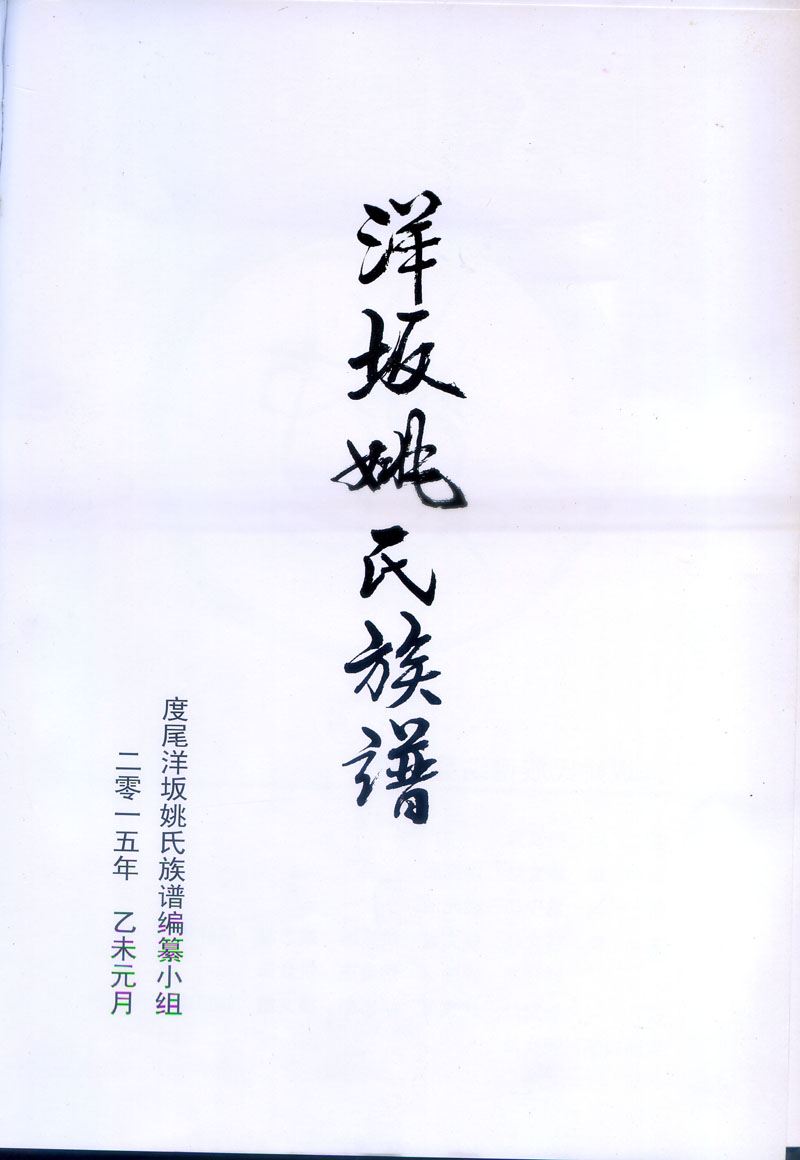 洋坂姚氏族谱
度尾洋坂姚氏族谱编纂小组
二零一五年 乙未元月